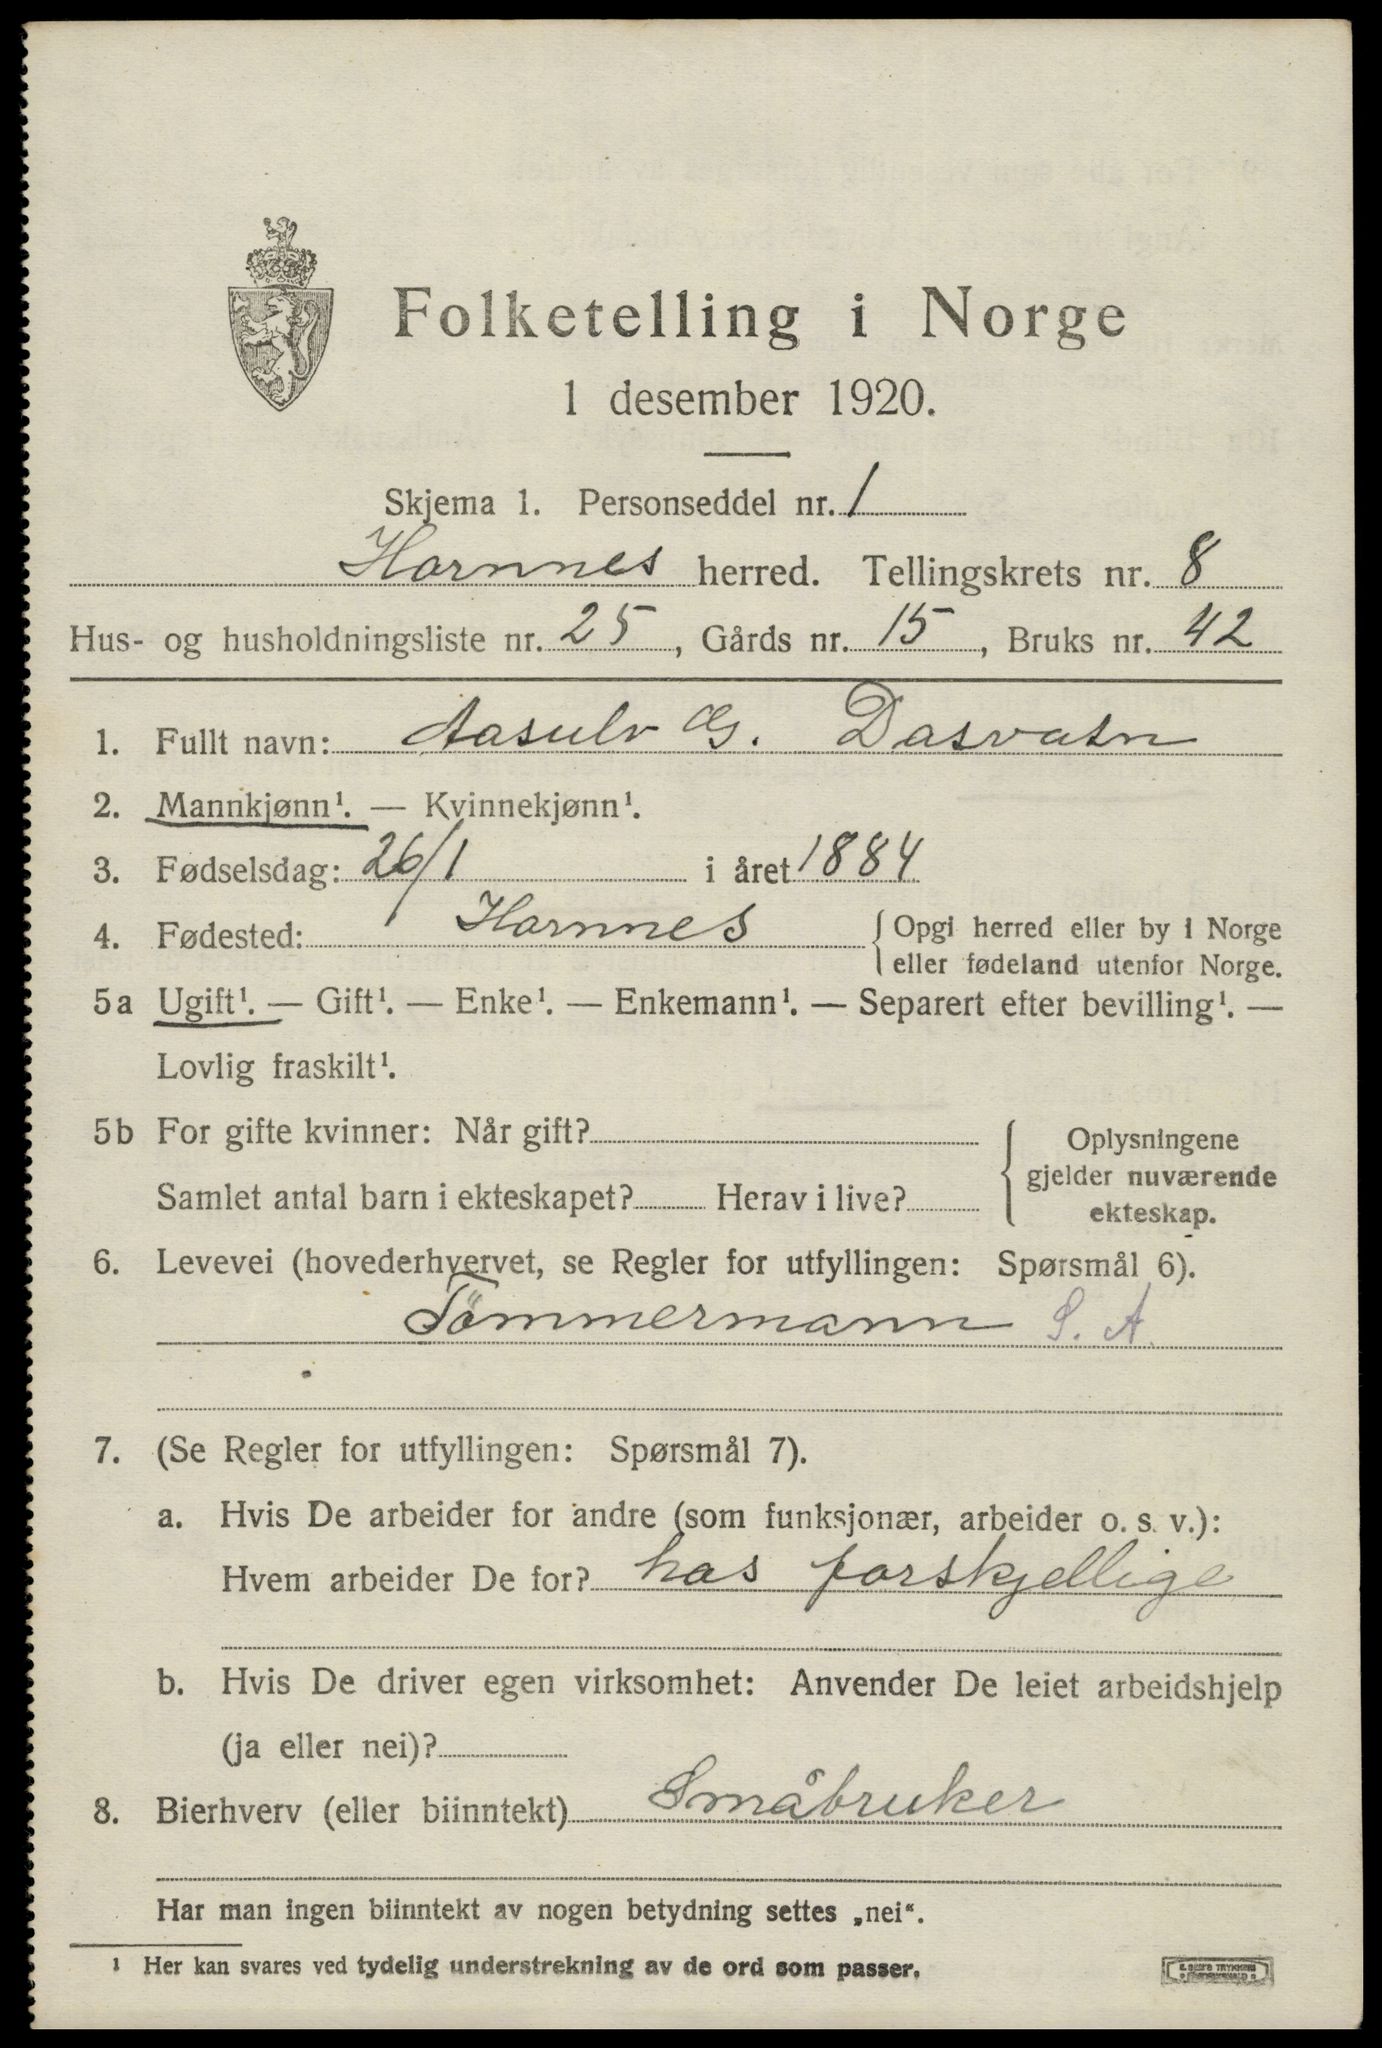 Folketelling i Norge
1 desember 1920.
Skjema 1. Personseddel nr. 1
Hornnes herred. Tellingskrets nr. 8
Hus- og husholdningsliste nr. 25, Gårds nr. 15, Bruks nr. 42
1. Fullt navn: Aasulv G. Dasvatn
2. Mannkjønn¹. — Kvinnekjønn¹.
3. Fødselsdag: 26/1 i året 1884
4. Fødested: Hornnes { Opgi herred eller by i Norge
eller fødeland utenfor Norge.
5a Ugift¹. — Gift¹. — Enke¹. — Enkemann¹. — Separert efter bevilling¹. —
Lovlig fraskilt¹.
5b For gifte kvinner: Når gift?
Samlet antal barn i ekteskapet? Herav i live?
{ Oplysningene
gjelder nuværende
ekteskap.
6. Levevei (hovederhvervet, se Regler for utfyllingen: Spørsmål 6).
Tömmermann S. A.
7. (Se Regler for utfyllingen: Spørsmål 7).
a. Hvis De arbeider for andre (som funksjonær, arbeider o. s. v.):
Hvem arbeider De for? hos forskjellige
b. Hvis De driver egen virksomhet: Anvender De leiet arbeidshjelp
(ja eller nei)?
8. Bierhverv (eller biinntekt) Småbruker
Har man ingen biinntekt av nogen betydning settes „nei“.
¹ Her kan svares ved tydelig understrekning av de ord som passer.